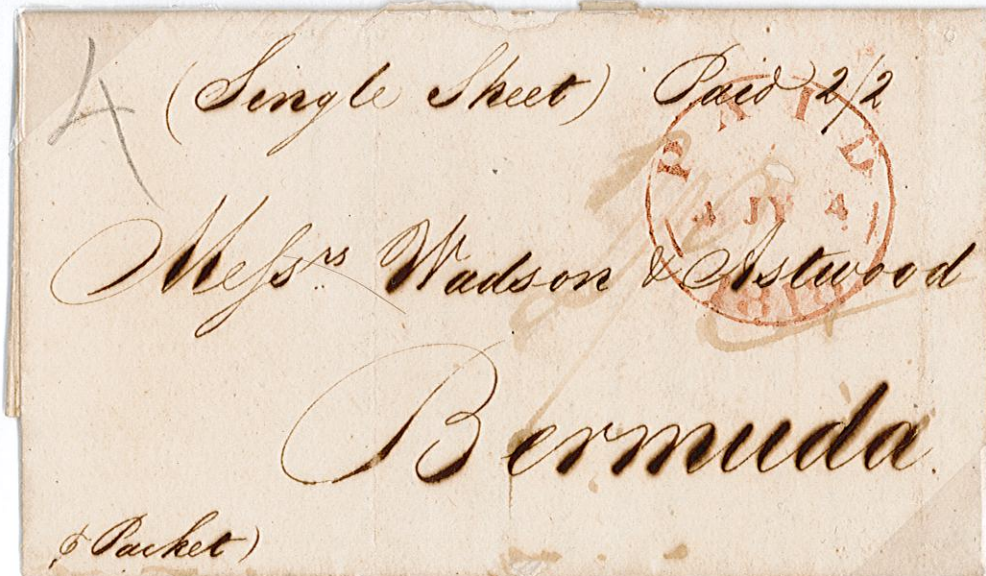 4
(Single Sheet) Paid 2/2
PAID
4 JY 4
1818
Messrs Wadson & Astwood
Bermuda.
Packet)